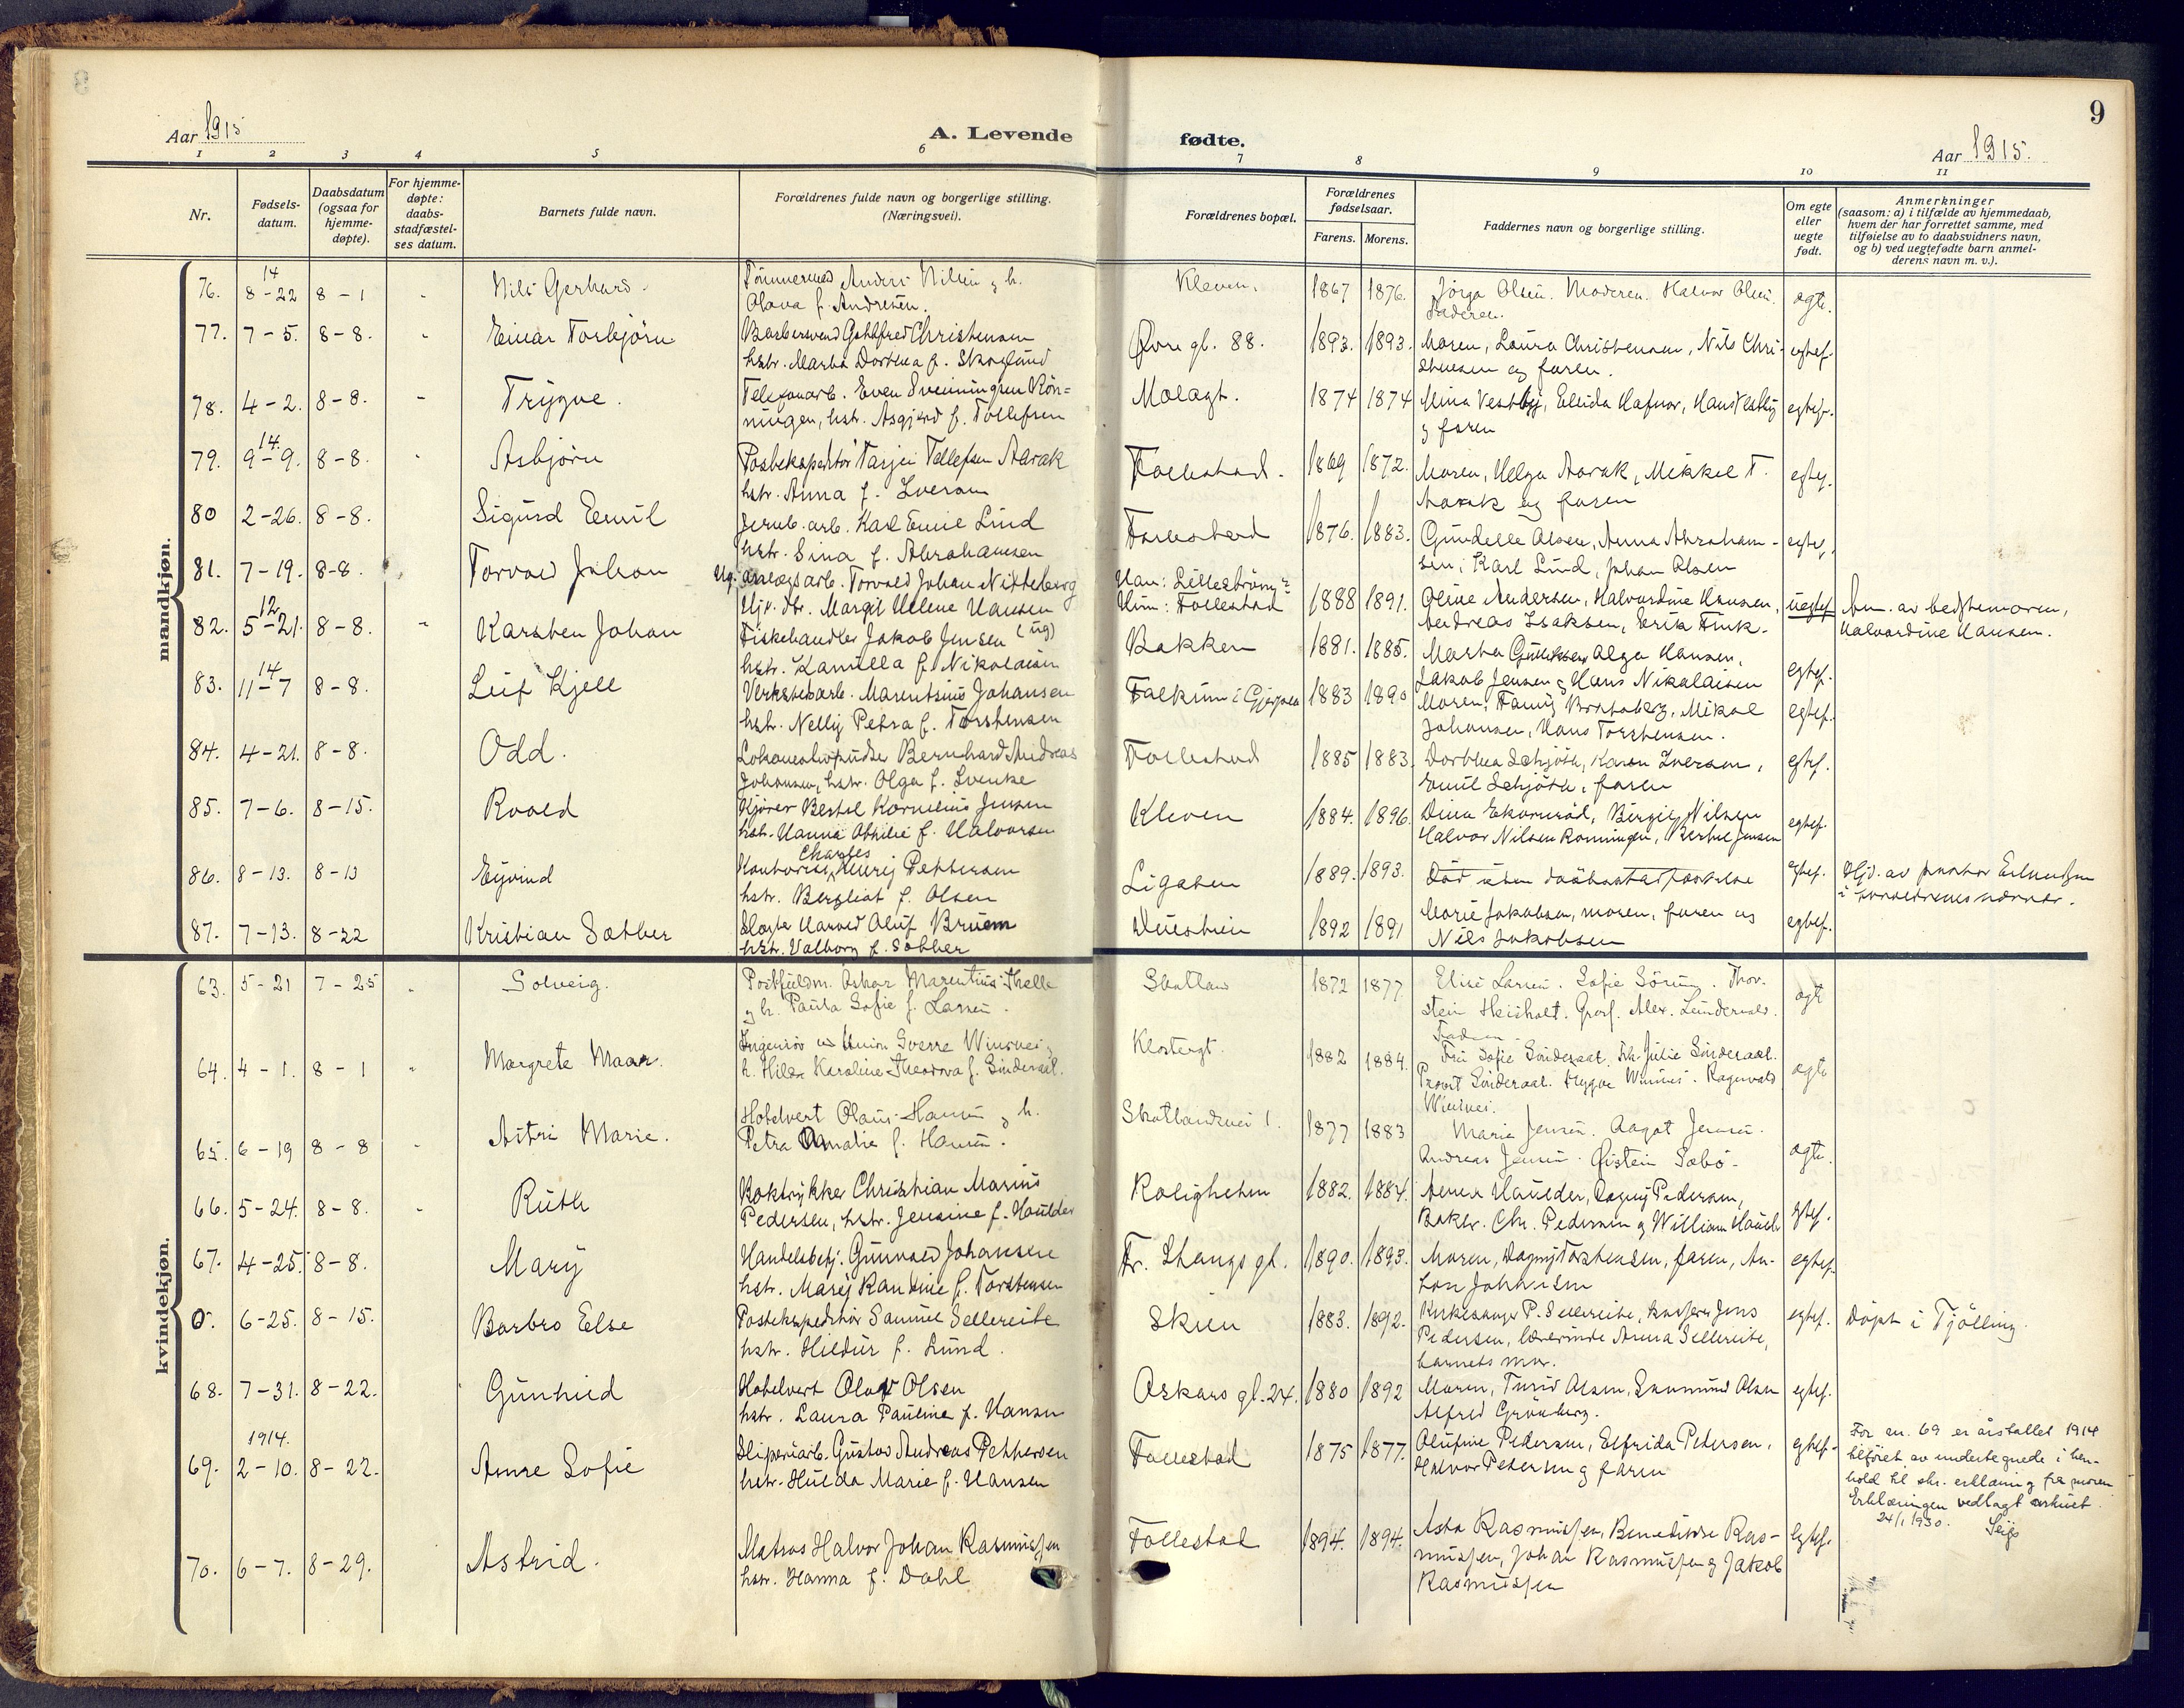 9
Aar 1915
A. Levende fødte.
Aar 1915.
1 2 3 4 5 6 7 8 9 10 11
Nr.
Fødsels-
datum.
Daabsdatum
(ogsaa for
hjemme-
døpte).
For hjemme-
døpte:
daabs-
stadfæstel-
ses datum.
Barnets fulde navn.
Forældrenes fulde navn og borgerlige stilling.
(Næringsvei).
Forældrenes bopæl.
Forældrenes
fødselsaar.
Farens. Morens.
Faddernes navn og borgerlige stilling.
Om egte
eller
uegte
født.
Anmerkninger
(saasom: a) i tilfælde av hjemmedaab,
hvem der har forrettet samme, med
tilføielse av to daabsvidners navn,
og b) ved uegtefødte barn anmel-
derens navn m. v.).
mandkjøn.
76. 14 8-22 8-1 Nils Gerhard.
Anders Nilsen og h.
Olava f. Andresen.
Kleven. 1867 1876.
Jørga Olsen. Moderen. Halvor Olsen.
Faderen.
ægte.
77. 7-5. 8-8. Einar Torbjörn
Barbersvend Gothfred Christensen
hstr. Martha Dorthea f. Skoglund
Øvre gt. 88. 1893. 1893.
Moren, Laura Christensen, Nils Chri-
stensen og faren.
egtef.
78. 4-2. 8-8. Trygve.
Telefonarb. Even Sveinungsen Rön-
ningen, hstr. Asgjerd f. Tollefsen
Molagt. 1874 1874
Mina Vestby, Ellida Hafnor, Hans Vestby
og faren
egtef.
79. 14. 9-9. 8-8. Asbjörn
Postekspeditör Tarjei Tellefsen Aarak
hstr. Anna f. Iversen
Follestad. 1869 1872.
Moren, Helga Aarak, Mikkel T.
Aarak og faren
egtef.
80 2-26. 8-8. Sigurd Emil
Jernb. arb. Karl Emil Lund
hstr. Sina f. Abrahamsen
Follestad 1876. 1883.
Gundelle Olsen, Anna Abraham-
sen, Karl Lund, Johan Olsen
egtef.
81. 7-19. 8-8. Torvald Johan
Ug. anlægsarb. Torvald Johan Nitteberg
Hjv. dtr. Margit Helene Hansen (ug)
Han: Lilleström?
Hun: Follestad 1888 1891.
Oline Andersen, Halvardine Hansen,
Andreas Isaksen, Erik Fink.
uegtef
Anm. av bedstemoren,
Halvardine Hansen.
82. 12. 5-21. 8-8. Karsten Johan
Fiskehandler Jakob Jensen
hstr. Kamilla f. Nikolaisen
Bakken 1881. 1885.
Martha Gulliksen, Olga Hansen,
Jakob Jensen og Hans Nikolaisen
egtef.
83. 14 11-7 8-8. Leif Kjell
Verkstedarb. Marentsius Johansen
hstr. Nelly Petra f. Torstensen
Falkum i Gjerpen 1883 1890
Moren, Fanny, Mikal
Johansen, Hans Torstensen.
egtef.
84. 4-21. 8-8. Odd.
Bernhard Andreas
Johansen, hstr. Olga f. Svenke
Follestad 1885 1883.
Dorthea Schjöth, Karen Iversen,
Emil Schjöth, faren
egtef.
85. 7-6. 8-15. Roald
Kjörer Bertel Kornelius Jensen
hstr. Hanna Othilie f. Halvorsen
Kleven 1884. 1896.
Dina Ekornröd, Birgit Nilsen
Halvor Nilsen Rönningen, Bertel Jensen
egtef.
86. 8-13. 8-13 Eyvind
Kontorist Charles Henry Pettersen
hstr. Bergliot f. Olsen
Ligaten 1889. 1893.
Död uten daabsstadfæstelse
egtef.
Hjd. av pastor
i forældrenes nærvær.
87. 7-13. 8-22 Kristian Sæther
Slagter Harald Oluf Bruem
hstr. Valborg f. Sæther
1892 1891
Marie Jakobsen, moren, faren og
Nils Jakobsen
egtef.
kvindekjøn.
63. 5-21 7-25 Solveig.
Postfuldm. Oskar Marentius Thelle
og h. Paula Sofie f. Larsen.
Skotland 1872 1877
Elise Larsen. Sofie Sörum. Thor-
stein Heisholt. Alex. Lundervold.
Faderen.
ægte
64. 4-1. 8-1 Margrete Maar.
Ingeniör ved Union Sverre Winsnes og
h. Hilda Karoline Theodora f. Sinderaal.
Klostergt. 1882 1884.
Fru Sofie Sinderaal. Frk. Julie Sinderaal.
Provst Sinderaal. Trygve Winsnes. Ragnvald
Winsnes.
ægte
65. 6-19 8-8 Astri Marie.
Hotelvert Olaus Hansen og h.
Petra Amalie f. Hansen.
Skotlandsvei 1. 1877 1883
Marie Jensen. Aagot Jensen.
Andreas Jensen. Øistein Sæbö.
ægte.
66. 5-24. 8-8. Ruth
Boktrykker Christian Marius
Pedersen, hstr. Jensine f. Haulder
Roligheten 1882. 1884.
Anna Haulder, Dagny Pedersen,
Boktr. Chr. Pedersen og William Hauld
egtef.
67. 4-25. 8-8. Mary
Handelsbetj. Gunvald Johansen
hstr. Mary Randine f. Torstensen
Fr. Stangs gt. 1890. 1893.
Moren, Dagny Torstensen, faren, An-
ton Johansen
egtef.
0. 6-25. 8-15. Barbro Else
Postekspeditör Samuel Sellereite
hstr. Hildur f. Lund.
Skien 1883. 1892.
Kirkesanger P. Sellereite, Jens
Pedersen, lærerinde Anna Sellereite,
barnets mor.
egtef.
Döpt i Tjölling.
68. 7-31. 8-22. Gunhild
Hotelvert Olaf Olsen
hstr. Laura Pauline f. Hansen
Oskars gt. 24. 1880 1892
Moren, Turid Olsen, Enemund Olsen
Alfred Grönberg.
egtef.
69. 1914. 2-10. 8-22. Anne Sofie
Sliperiarb. Gustav Andreas Pettersen
hstr. Hulda Marie f. Hansen
Follestad 1875 1877.
Olufine Pedersen, Elfrida Petersen,
Halvor Petersen og faren
egtef.
For nr. 69 er årstallet 1914
tilföiet av undertegnede i hen-
hold til skr. erklæring fra moren
Erklæringen vedlagt arkivet.
24/1 1930. Seip
70. 6-7. 8-29. Astrid.
Matros Halvor Johan Rasmussen
hstr. Hanna f. Dahl
Follestad 1894. 1894.
Asta Rasmussen, Benedikte Ras-
mussen, Johan Rasmussen og Jakob
Rasmussen
Egtef.